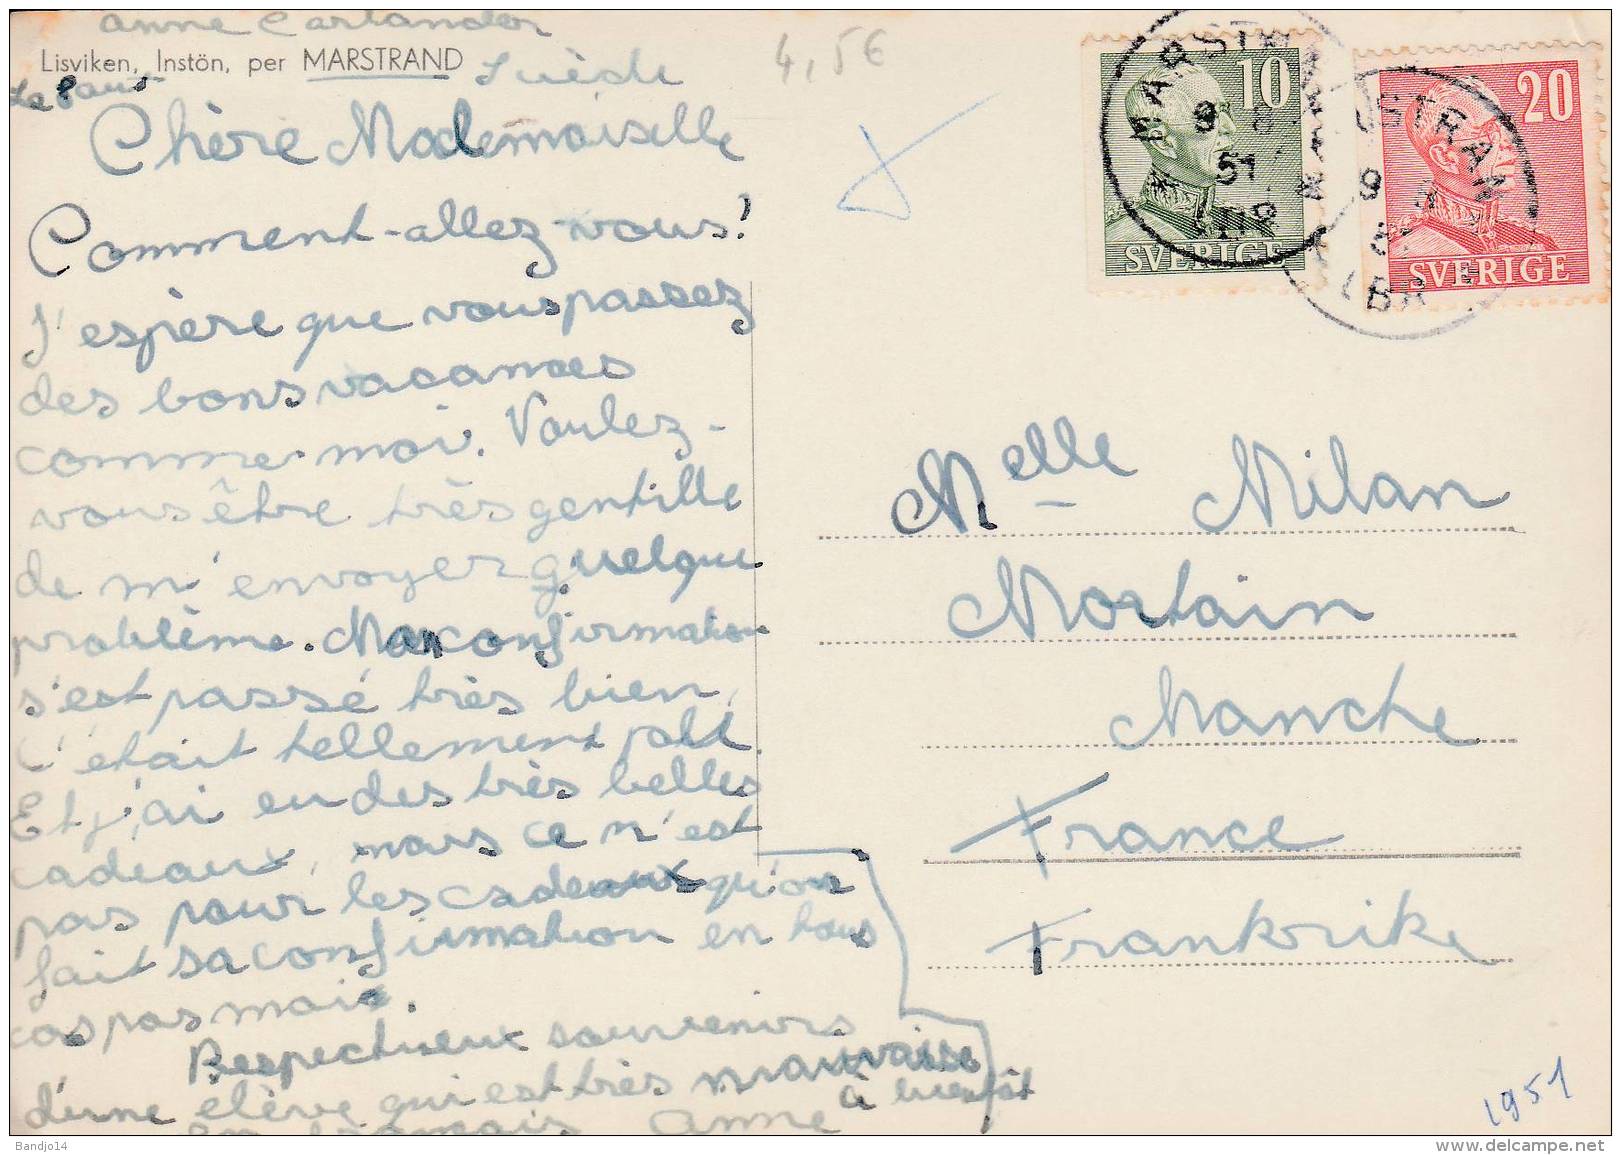 anne Carlander
Lisviken, Instön, per MARSTRAND
Suède
4,5€
Chère Mademoiselle
Comment-allez-vous!
J'espère que vous passez
des bons vacances
comme moi. Voulez-
vous être très gentille
de m'envoyer quelque
problème. Ma confirmation
s'est passé très bien,
C'était tellement
Et j'ai eu des très belles
cadeaux, mais ce n'est
pas pour les cadeaux qu'on
fait sa confirmation en tous
cas pas moi.
Respectueux souvenirs
d'une elève qui est très mauvaise
en français Anne à bientôt
10
SVERIGE
20
SVERIGE
MARSTRAND
9 8
51
LBR
Melle Milan
Mortain
Manche
France
Frankrike
1951
Bandjo14
www.delcampe.net